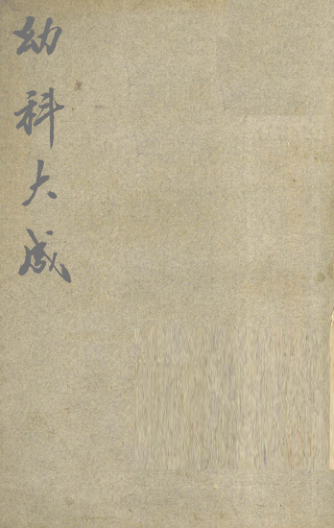 幼科大成